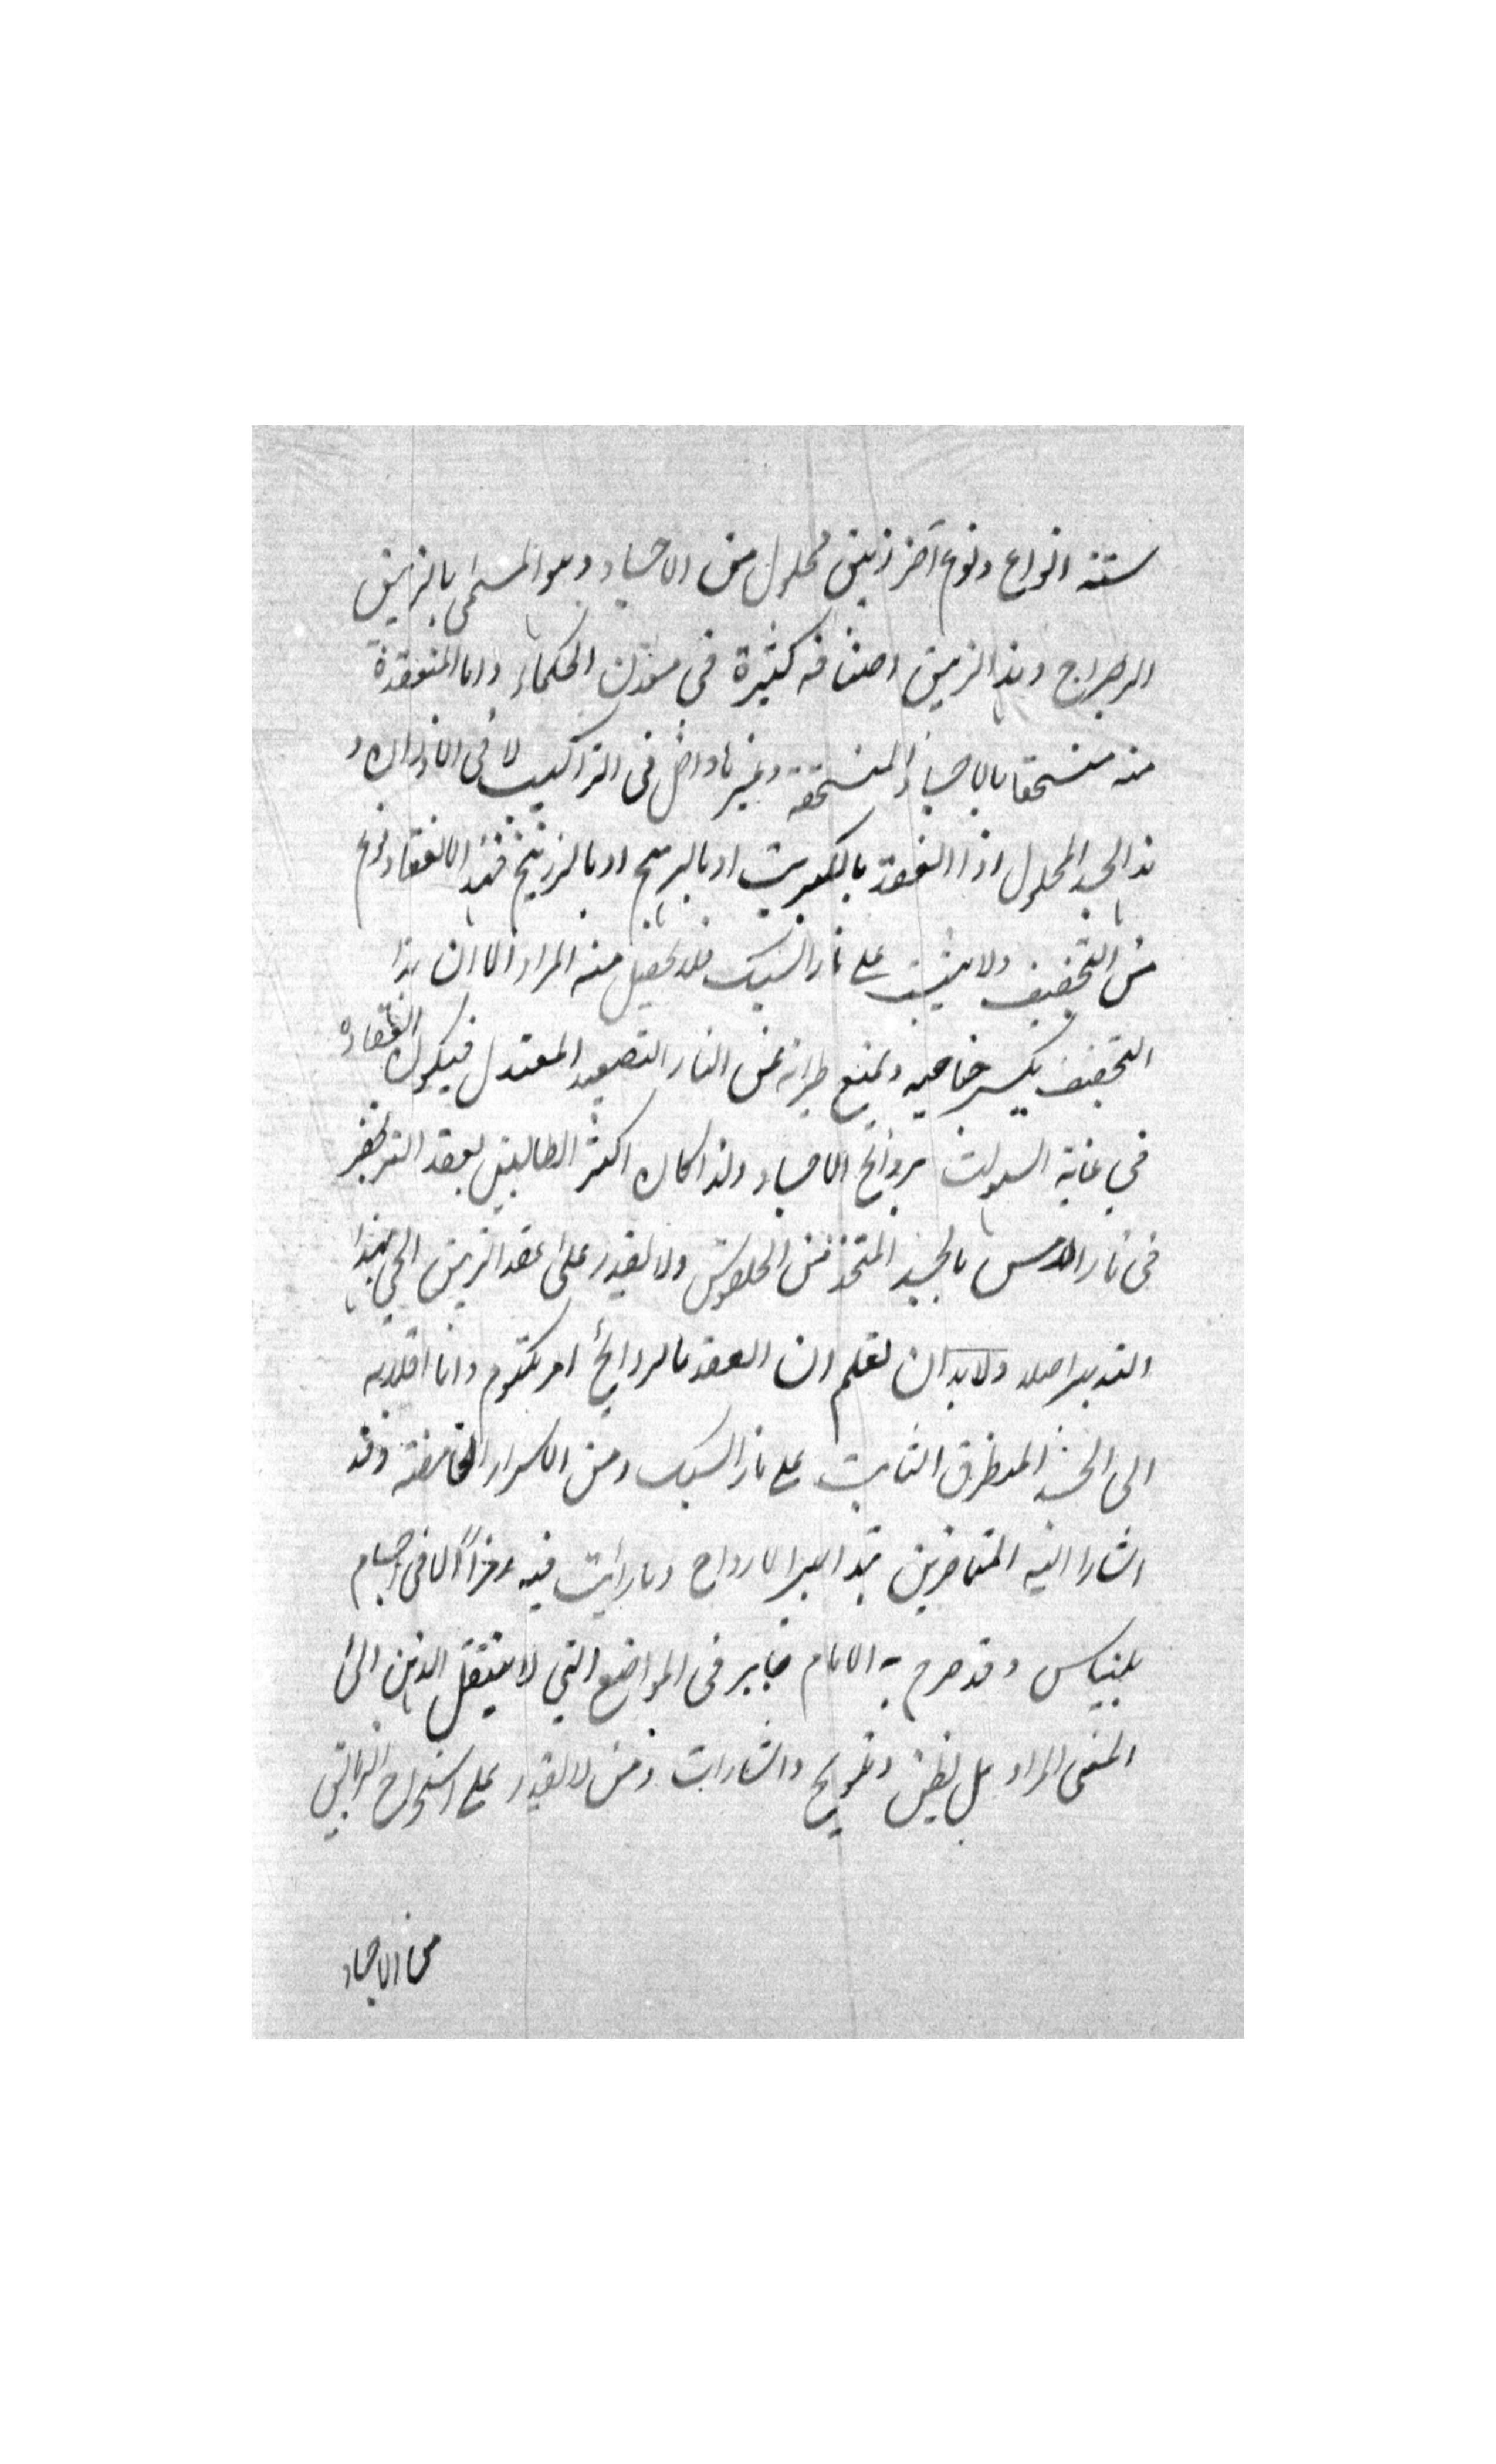 ستة انواع ونوع آخر زيبق محلول من الاجساد وهو المسمى بالزيبق
الرجراج وهذا الزيبق اصنافه كثيرة فى الحكماء واما المنعقدة
منه منسحقا بالاجساد المنسحقة وغيرها داخل فى التراكيب لا فى الاوزان و
هذا الجسد المحلول اذا انعقد بالكبريت او بالمريخ او بالزرنيخ فهذا الانعقاد نوع
من التجفيف ولا يثبت على نار السبك فلا يحصل منه المراد الا ان هذا
التجفيف يكسر خاصيه ويمنع طيرانه من النار التصعيد المعتدل فيكون انعقاده
فى غاية السهولت بروائح الاجساد ولذا كان اكثر الطالبين بعقد
فى نار بالجسد المتخذ من ولا يقدر على عقد الزيبق الحى بهذا
التدبير اصلا ولا بد ان تعلم ان العقد بالروائح امر مكتوم وانا
الى الجسد المتطرق الثابت على نار السبك ومن الاسرار الغامضة وقد
اشارا اليه المتاخرين تدابير الارواح وما رأيت فيه رمزاً الا فى اجسام
بلنياس وقد صرح به الامام جابر فى المواضع التى لا ينتقل الذهن الى
المعنى المراد بل بظن وتلويح واشارات ومن لا يقدر على استخراج الزيابق
من الاجساد